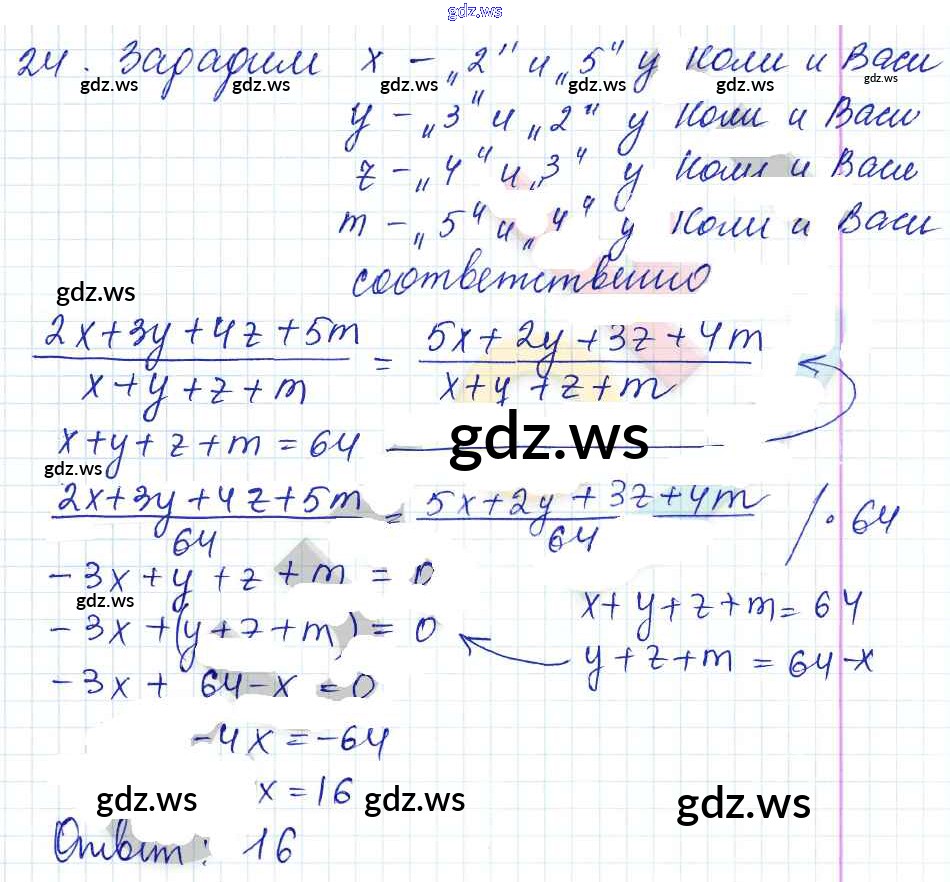 gdz.ws
24. Зададим x - „2" и „5" у Коли и Васи
gdz.ws gdz.ws gdz.ws gdz.ws gdz.ws
y - „3" и „2" у Коли и Васи
z - „4" и „3" у Коли и Васи
m - „5" и „4" у Коли и Васи
соответственно
gdz.ws
2x+3y+4z+5m / x+y+z+m = 5x+2y+3z+4m / x+y+z+m
x+y+z+m = 64
gdz.ws
gdz.ws
2x+3y+4z+5m / 64 = 5x+2y+3z+4m / 64 / · 64
-3x+y+z+m = 0
gdz.ws
x+y+z+m = 64
-3x+(y+z+m) = 0
y+z+m = 64-x
-3x+ 64-x = 0
-4x = -64
x = 16
gdz.ws gdz.ws gdz.ws
Ответ: 16